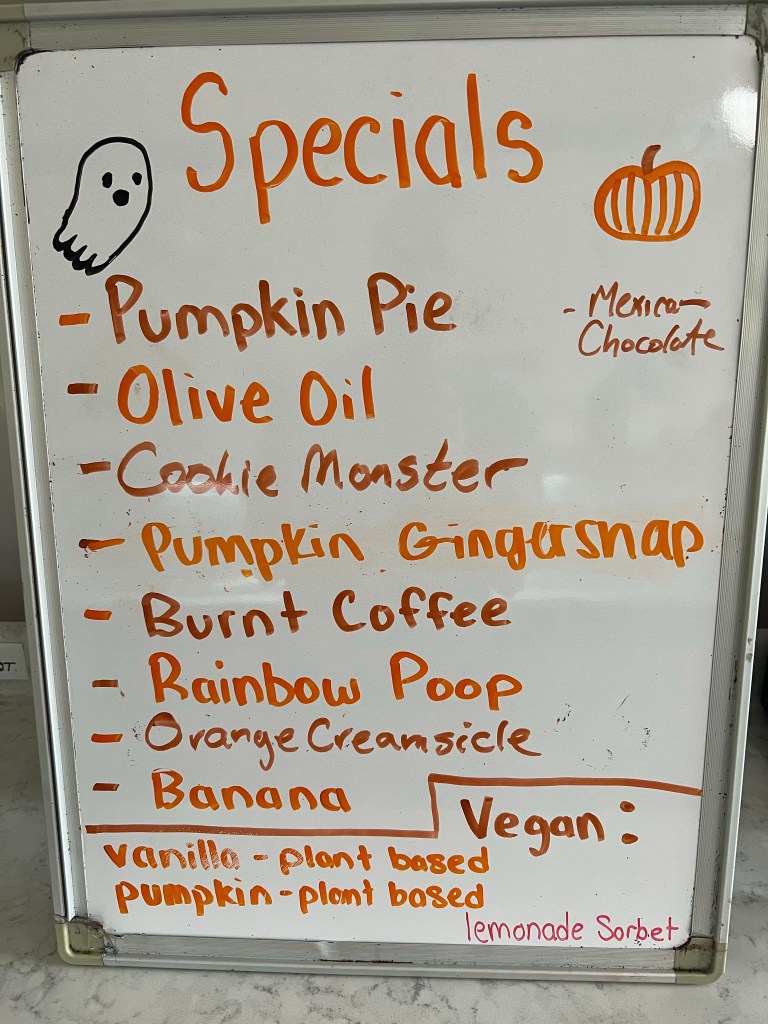 Specials
- Pumpkin Pie
- Mexican
Chocolate
- Olive Oil
- Cookie Monster
- Pumpkin Gingersnap
- Burnt Coffee
- Rainbow Poop
- Orange Creamsicle
- Banana
Vegan:
vanilla - plant based
pumpkin - plant based
lemonade Sorbet